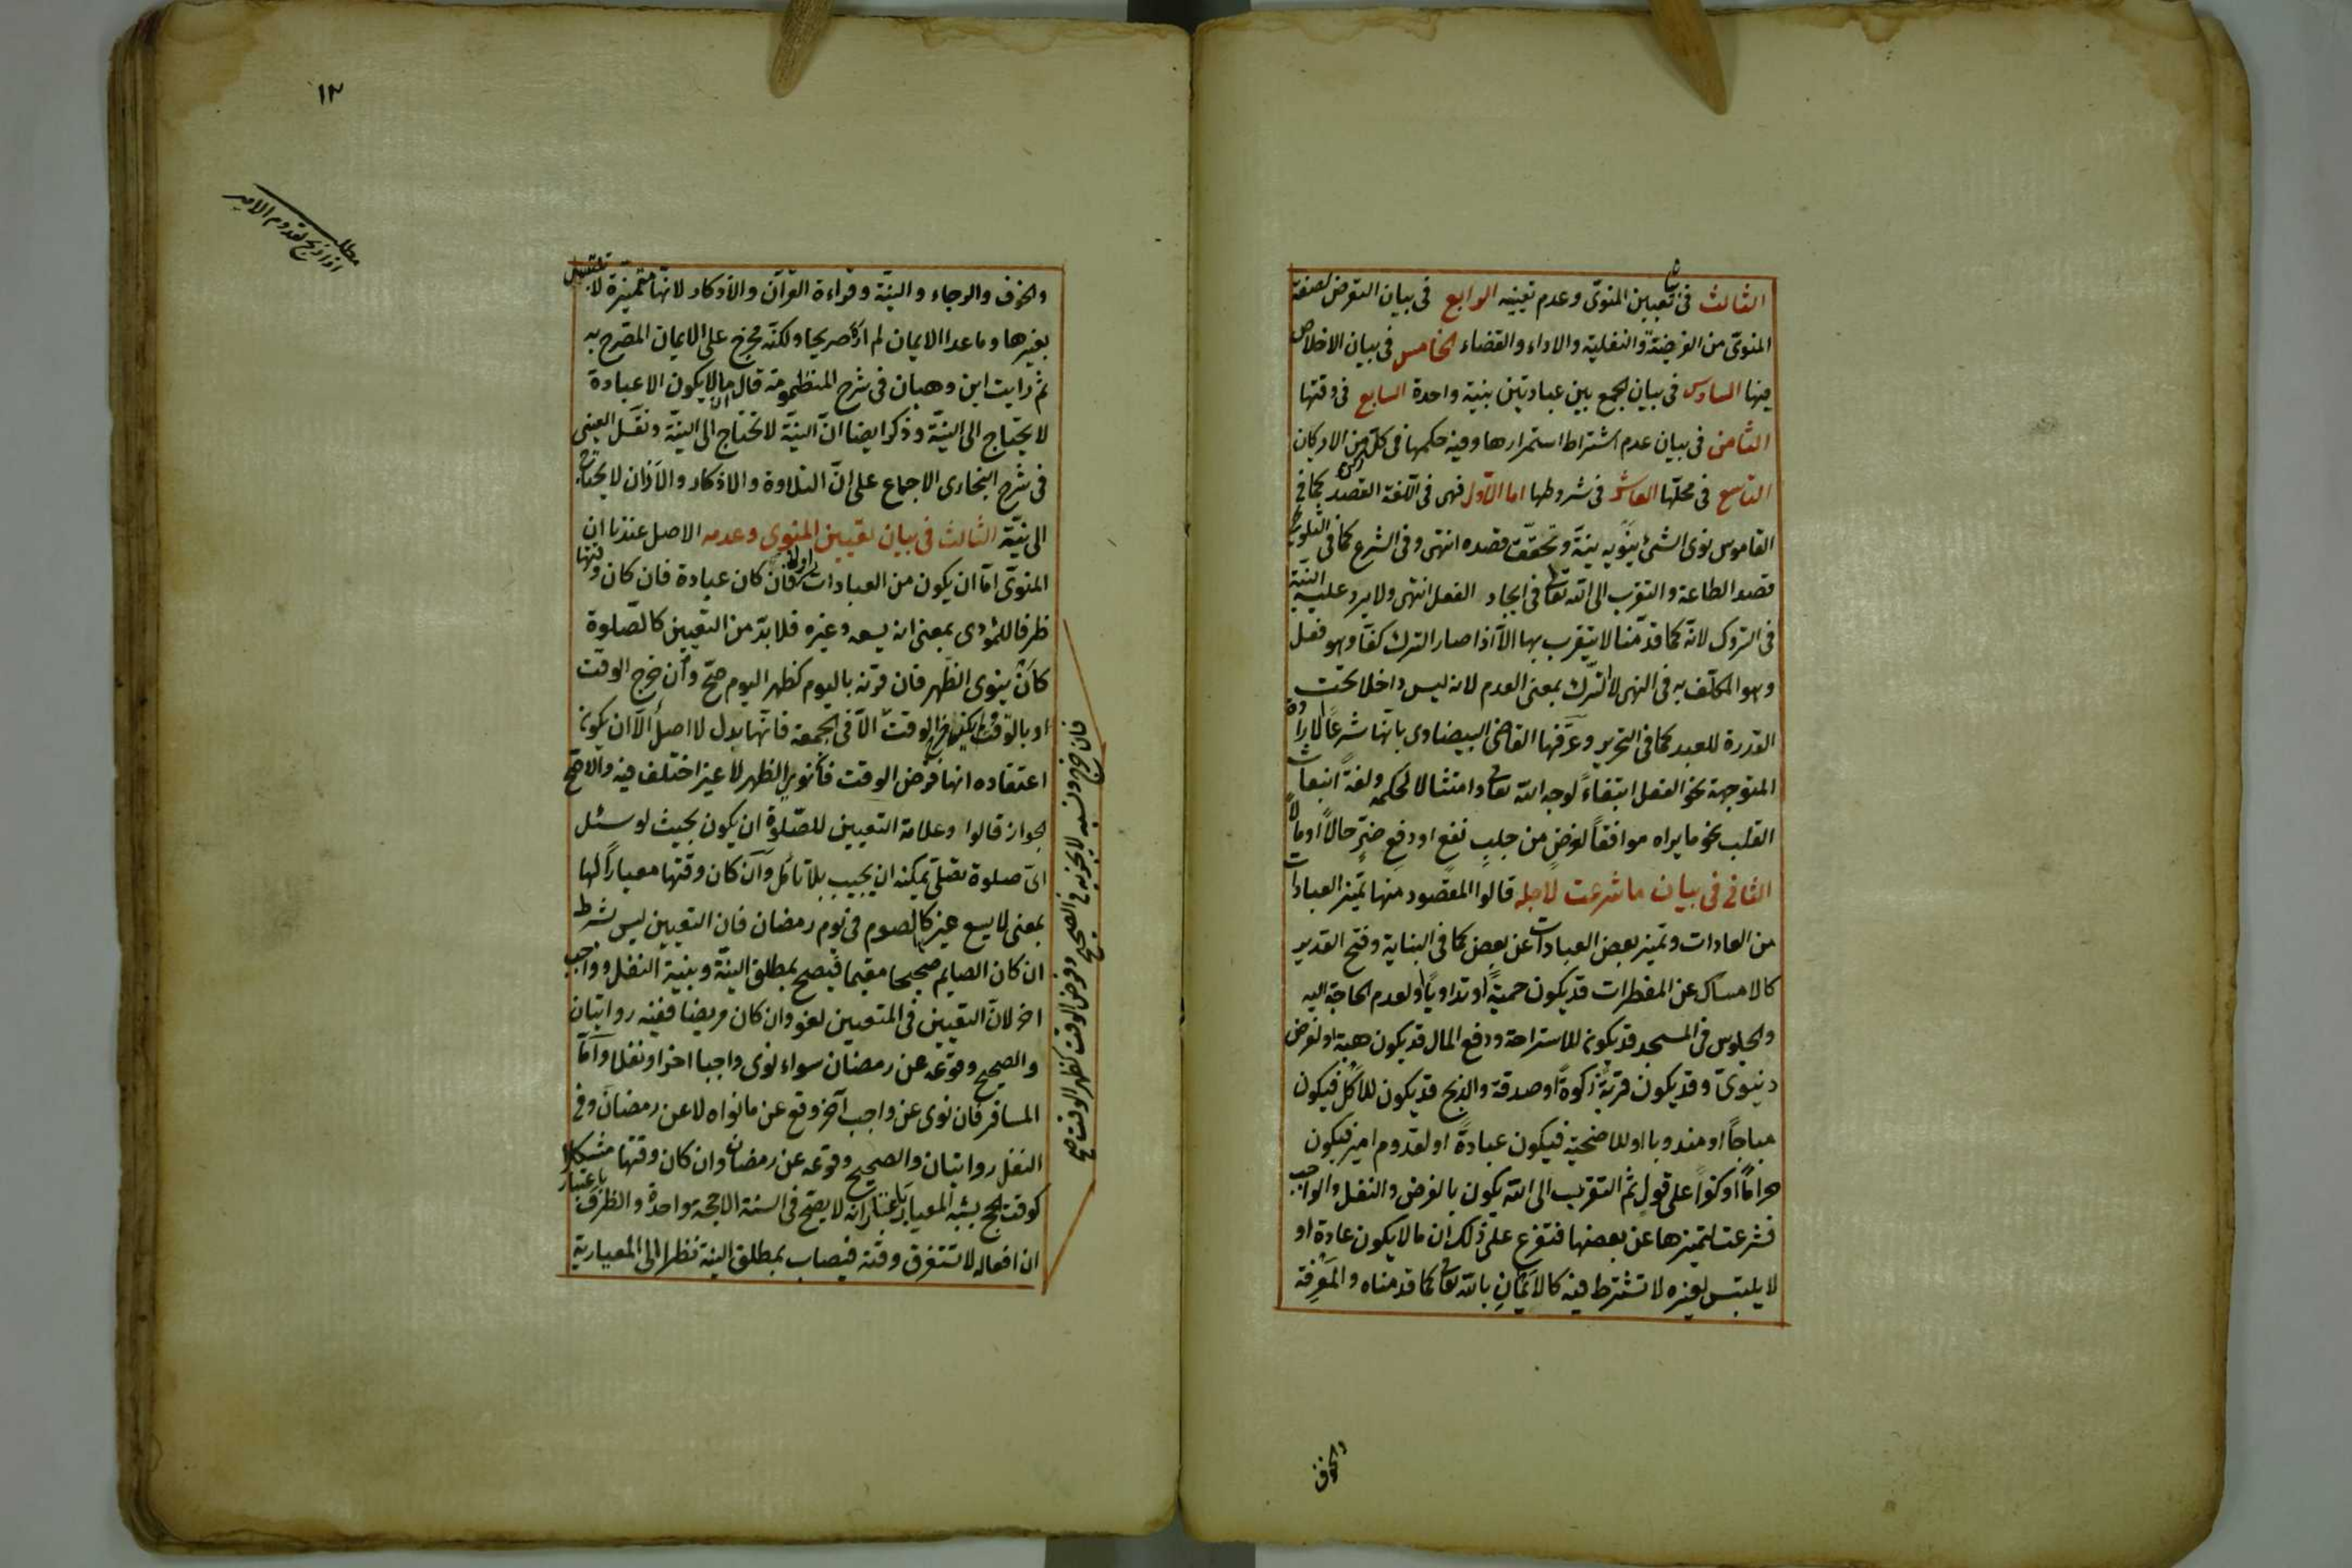 الثالث فى بيان تعيين المنوىّ وعدم تعيينه الرابع فى بيان التعرض لصفة
المنوىّ من الفريضة والنفلية والاداء والقضاء الخامس فى بيان الاخلاص
فيها السادس فى بيان الجمع بين عبادتين بنية واحدة السابع فى وقتها
الثامن فى بيان عدم اشتراط استمرارها وفيه حكمها فى كلّ ركن من الاركان
التاسع فى محلّها العاشر فى شروطها اما الاّول فهى فى اللّغة القصد كما فى
القاموس نوى الشئ ينويه نيّة وتخفّف قصده انتهى وفى الشرع كما فى التلويح
قصد الطاعة والتقرب الى الله تعالى فى ايجاد الفعل انتهى ولا يرد عليه النيّة
فى التروك لانّه كما قدّمنا لا يتقرب بها الاّ اذا صار الترك كفّا وهو فعل
وهو المكلّف به فى النهى لا الترك بمعنى العدم لانه ليس داخلا تحت
القدرة للعبد كما فى التحرير وعرّفها القاضى البيضاوى بانّها شرعًا الارادة
المتوجهة نحو الفعل ابتغاءً لوجه الله تعالى وامتثالا لحكمه ولغةً انبعاث
القلب نحو ما يراه موافقاً لغرضٍ من جلبِ نفعٍ او دفعِ ضرٍّ حالاً او مآلاً
الثانى فى بيان ما شرعت لاجله قالوا المقصود منها تميّز العبادات
من العادات وتميّز بعض العبادات عن بعض كما فى البناية وفتح القدير
كالامساك عن المفطرات قد يكون حميةً او تداويًا او لعدم الحاجة اليه
والجلوس فى المسجد قد يكون للاستراحة ودفع المال قد يكون هبة او لغرض
دنيوىّ وقد يكون قربة زكوةً او صدقة والذبح قد يكون للاكل فيكون
مباحًا او مندوبا او للاضحية فيكون عبادةً او لقدوم امير فيكون
حرامًا او كفراً على قولٍ ثمّ التقرب الى الله يكون بالفرض والنفل والواجب
فشرعت لتميزها عن بعضها فتفرع على ذلك ان ما لا يكون عادة او
لا يلتبس لغيره لا تشترط فيه كالايمان بالله تعالى كما قدمناه والمعرفة
والخوف
١٢
مطلب
اذا ذبح لقدوم الامير
والخوف والرجاء والنيّة وقراءة القرآن والاذكار لانّها متميّزة لا تلتبس
بغيرها وما عدا الايمان لم اره صريحا ولكنّه مخرج على الايمان المصّرح به
ثمّ رايت ابن وهبان فى شرح المنظومة قال ان ما لا يكون الا عبادة
لا يحتاج الى النيّة وذكر ايضا انّ النيّة لا تحتاج الى النيّة ونقل العينى
فى شرح البخارى الاجماع على انّ التلاوة والاذكار والاذان لا يحتاج
الى نيّة الثالث فى بيان تعيين المنوى وعدمه الاصل عندنا ان
المنوىّ امّا ان يكون من العبادات او لا فان كان عبادة فان كان وقتها
ظرفا للمؤدى بمعنى انه يسعه وغيره فلا بدّ من التعيين كالصّلوة
كانْ ينوى الظهر فان قرنه باليوم كظهر اليوم صحّ وان خرج الوقت
او بالوقت ولم يكن خرج الوقت الاّ فى الجمعة فانّها بدل لا اصلٌ الاّ ان يكون
اعتقاده انها فرض الوقت فلو نوى الظهر لا غير اختلف فيه والاصّح
الجواز قالوا وعلامة التعيين للصّلوة ان يكون بحيث لو سئل
اىّ صلوة تصلّى يمكنه ان يجيب بلا تأمّل وان كان وقتها معيارًا لها
بمعنى لا يسع غيرها كالصوم فى يوم رمضان فان التعيين ليس بشرط
ان كان الصايم صحيحا مقيما فيصح بمطلق النيّة وبنية النفل وواجب
اخر لانّ التعيين فى المتعيين لغو وان كان مريضا ففيه روايتان
والصحيح وقوعه عن رمضان سواء نوى واجبا اخر او نفلا وامّا
المسافر فان نوى عن واجب آخر وقع عن ما نواه لا عن رمضان وفى
النفل روايتان والصحيح وقوعه عن رمضان وان كان وقتها مشكلا
كوقت الحج يشبه المعيار باعتبار انه لا يصحّ فى السنة الا حجة واحدة والظرف باعتبار
ان افعاله لا تستغرق وقته فيصاب بمطلق النية نظرا الى المعيارية
فان خرج ونسيه لا يجزيه فى الصحيح وفرض الوقت كظهر الوقت صح